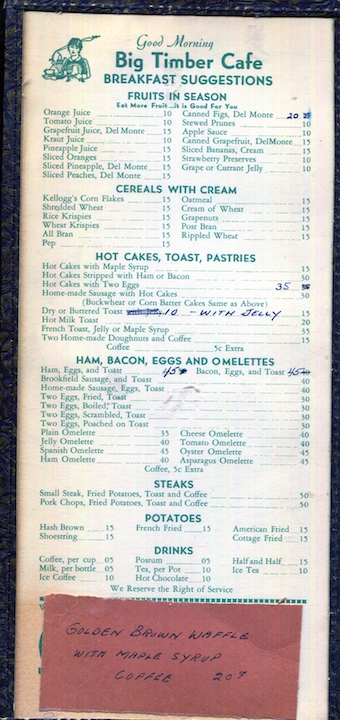 Good Morning
Big Timber Cafe
BREAKFAST SUGGESTIONS
FRUITS IN SEASON
Eat More Fruit...it is Good For You
Orange Juice 10 Canned Figs, Del Monte 20
Tomato Juice 10 Stewed Prunes 10
Grapefruit Juice, Del Monte 15 Apple Sauce 10
Kraut Juice 10 Canned Grapefruit, DelMonte 15
Pineapple Juice 15 Sliced Bananas, Cream 15
Sliced Oranges 15 Strawberry Preserves 10
Sliced Pineapple, Del Monte 15 Grape or Currant Jelly 10
Sliced Peaches, Del Monte 15
CEREALS WITH CREAM
Kellogg's Corn Flakes 15 Oatmeal 15
Shredded Wheat 15 Cream of Wheat 15
Rice Krispies 15 Grapenuts 15
Wheat Krispies 15 Post Bran 15
All Bran 15 Rippled Wheat 15
Pep 15
HOT CAKES, TOAST, PASTRIES
Hot Cakes with Maple Syrup 15
Hot Cakes Stripped with Ham or Bacon 30
Hot Cakes with Two Eggs 35
Home-made Sausage with Hot Cakes 30
(Buckwheat or Corn Batter Cakes Same as Above)
Dry or Buttered Toast 10 - WITH JELLY 15
Hot Milk Toast 20
French Toast, Jelly or Maple Syrup 35
Two Home-made Doughnuts and Coffee 15
Coffee 5c Extra
HAM, BACON, EGGS AND OMELETTES
Ham, Eggs, and Toast 45¢ Bacon, Eggs, and Toast 45
Brookfield Sausage, and Toast 40
Home-made Sausage, Eggs, Toast 40
Two Eggs, Fried, Toast 30
Two Eggs, Boiled, Toast 30
Two Eggs, Scrambled, Toast 30
Two Eggs, Poached on Toast 30
Plain Omelette 35 Cheese Omelette 40
Jelly Omelette 40 Tomato Omelette 40
Spanish Omelette 45 Oyster Omelette 45
Ham Omelette 40 Asparagus Omelette 45
Coffee, 5c Extra
STEAKS
Small Steak, Fried Potatoes, Toast and Coffee 50
Pork Chops, Fried Potatoes, Toast and Coffee 50
POTATOES
Hash Brown 15 French Fried 15 American Fried 15
Shoestring 15 Cottage Fried 15
DRINKS
Coffee, per cup 05 Postum 05 Half and Half 15
Milk, per bottle 05 Tea, per Pot 10 Ice Tea 10
Ice Coffee 10 Hot Chocolate 10
We Reserve the Right of Service
GOLDEN BROWN WAFFLE
WITH MAPLE SYRUP
COFFEE 20¢